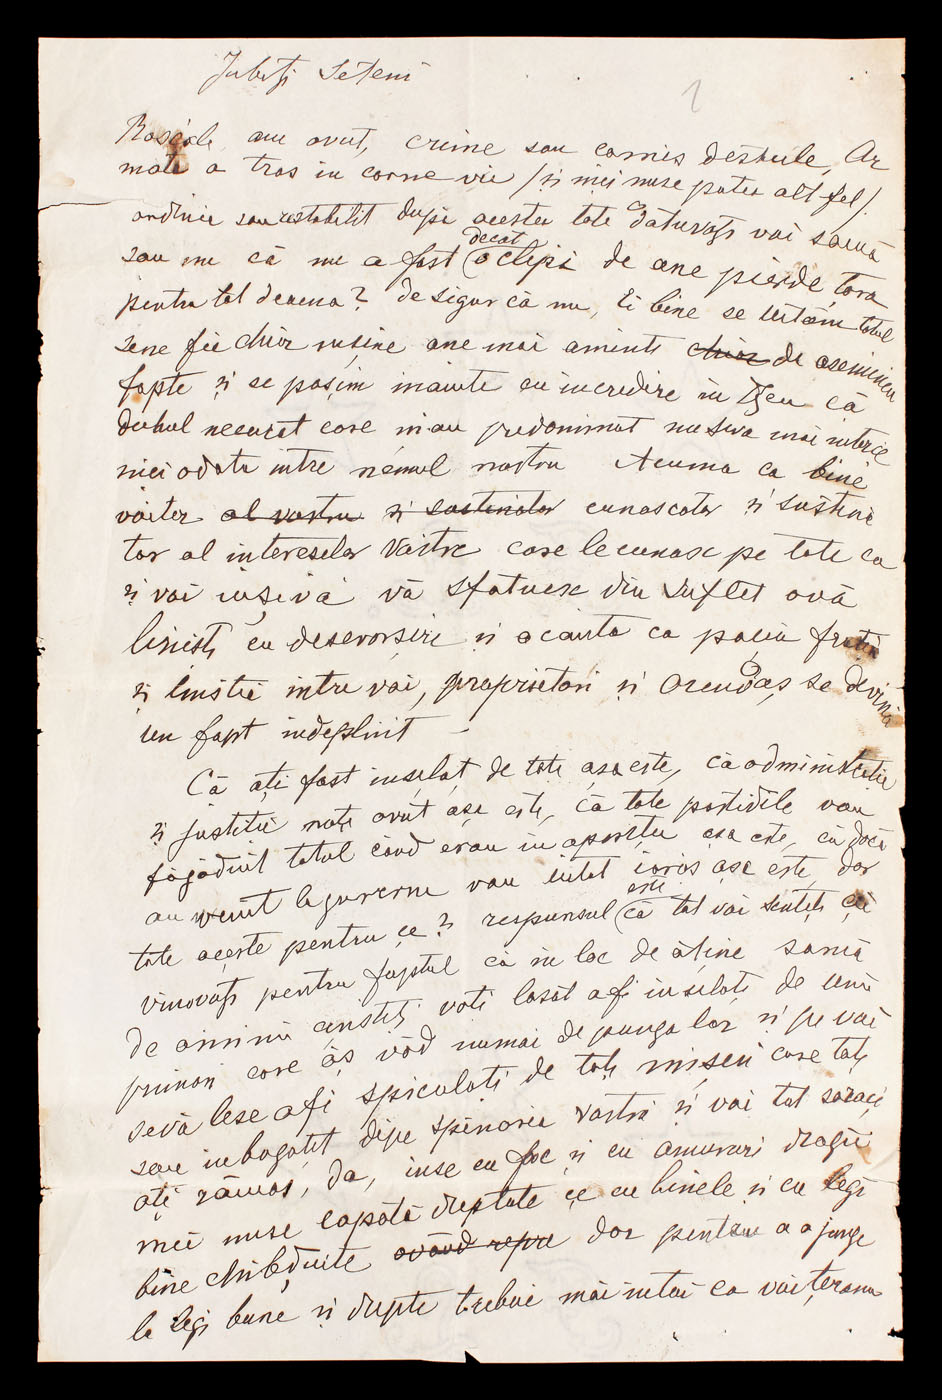 Iubiți Seteni
1
Rascole am avut, crime sau comis destule, Ar
mata a tras in carne vie /și nici nuse putea alt fel/.
ordinea saurestabilit dupe acestea tote dăturați voi samă
sau nu că nu a fost (decat o clipă de ane pierde țara
pentru tot deauna? desigur că nu, Ei bine se uităm totul
sene fie chiar rușine ane mai aminti chiar de aseminea
fapte și se pașim inainte cu incredire in Dzeu că
duhul necurat care niau predominat nuseva mai intorce
nici odata intre nemul nostru Acuma ca bine
voitor al vostru și sustinator cunoscator și sustini
tor al intereselor Vostre care lecunosc pe tote ca
și voi inșivă vă sfatuesc din suflet avă
liniști cu desevorșire și acauta ca pacea fratia
și linistie intre voi, proprietari și arendaș se devină
un fapt indeplinit —
Că ați fost inșelaț de toți așa este, că administratie
și justitie nați avut așa este, că tote partidile vau
făgăduit totul când erau in apozitie așa este, că dacă
au venit la guvernu vau uitat iaraș așa este, dar
tote aceste pentru ce? și respunsul (este că tot voi sunteți cei
vinovați pentru faptul că in loc de aține samă
de omini cinstiți vați lasat afi inșelati de unii
primari care aș văd numai de punga lor și pe voi
sevă lese afi spiculati de toți mișeii care toți
sau imbogățit dipe spinarea vostră și voi tot saraci
ați rămas, da, inse cu foc și cu amururi dragii
mei nuse capătă dreptate ce cu binele și cu legi
bine chibduite având repre dar pentru a ajunge
la legi bune și drepte trebue mai intai ca voi țeranu